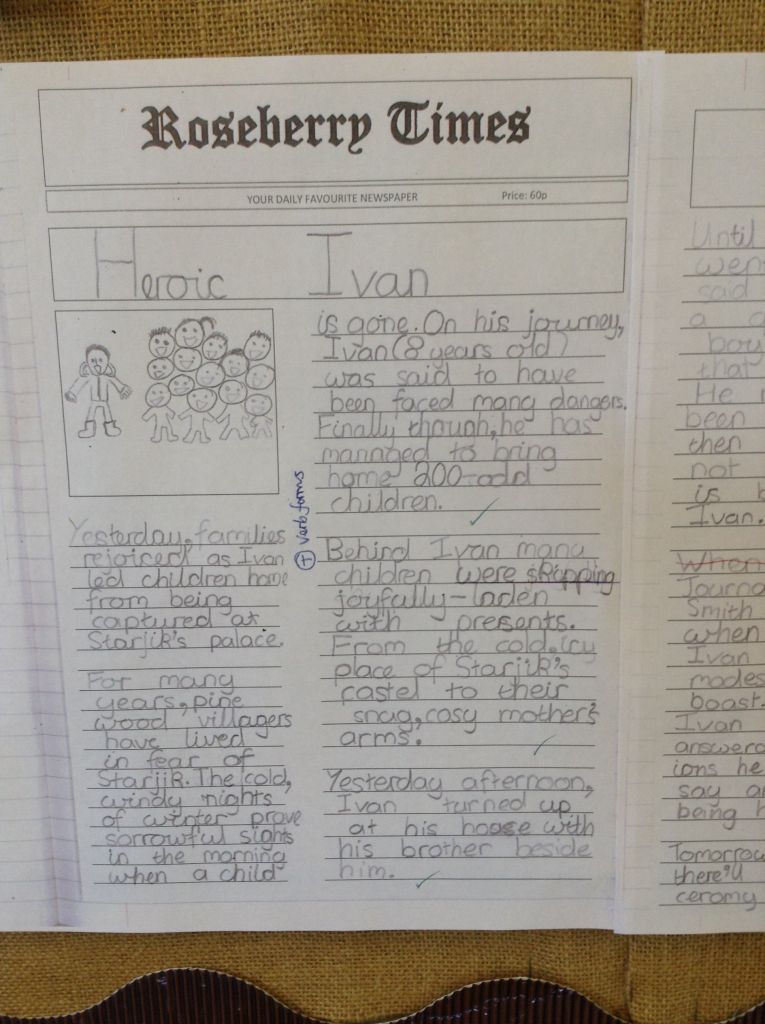 Roseberry Times
YOUR DAILY FAVOURITE NEWSPAPER Price: 60p
Heroic Ivan
Yesterday, families
rejoiced as Ivan
led children home
from being
captured at
Starjik's palace.
For many
years, pine
wood villagers
have lived
in fear of
Starjik. The cold,
windy nights
of winter prove
sorrowful sights
in the morning
when a child
is gone. On his journey,
Ivan (8 years old)
was said to have
been faced many dangers.
Finally though, he has
managed to bring
home 200-odd
children.
+ verb forms
Behind Ivan many
children were skipping
joyfully-laden
with presents.
From the cold, icy
place of Starjik's
castel to their
snug, cosy mother's
arms.
Yesterday afternoon,
Ivan turned up
at his hoose with
his brother beside
him.
Until
wen
said
a
boy
that
He
been
then
not
is
Ivan.
When
Journa
Smith
when
Ivan
modes
boast.
Ivan
answerd
ions he
say
being
Tomorrow
there'll
ceromy